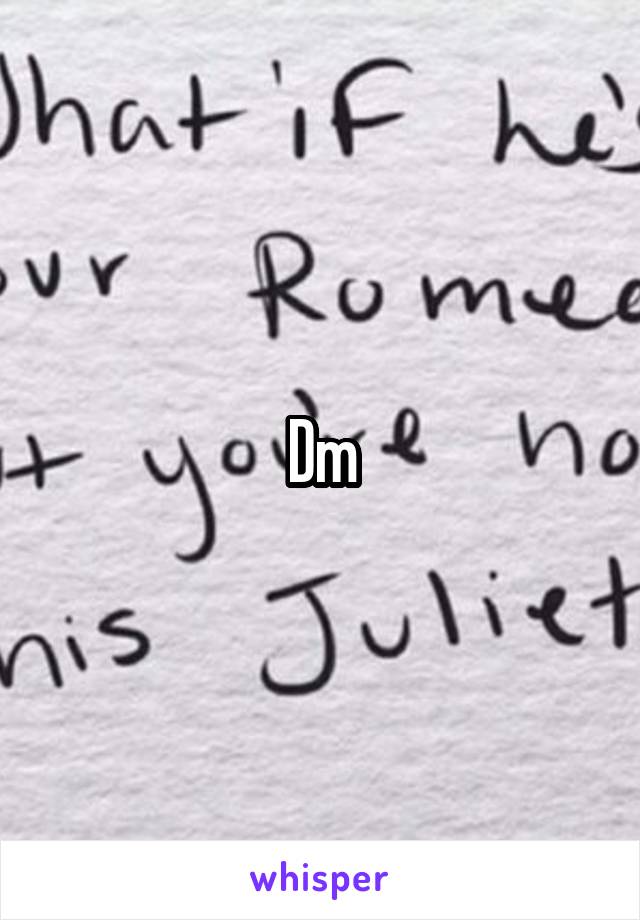 What if he's
our Romeo
t you're no
his Juliet
Dm
whisper